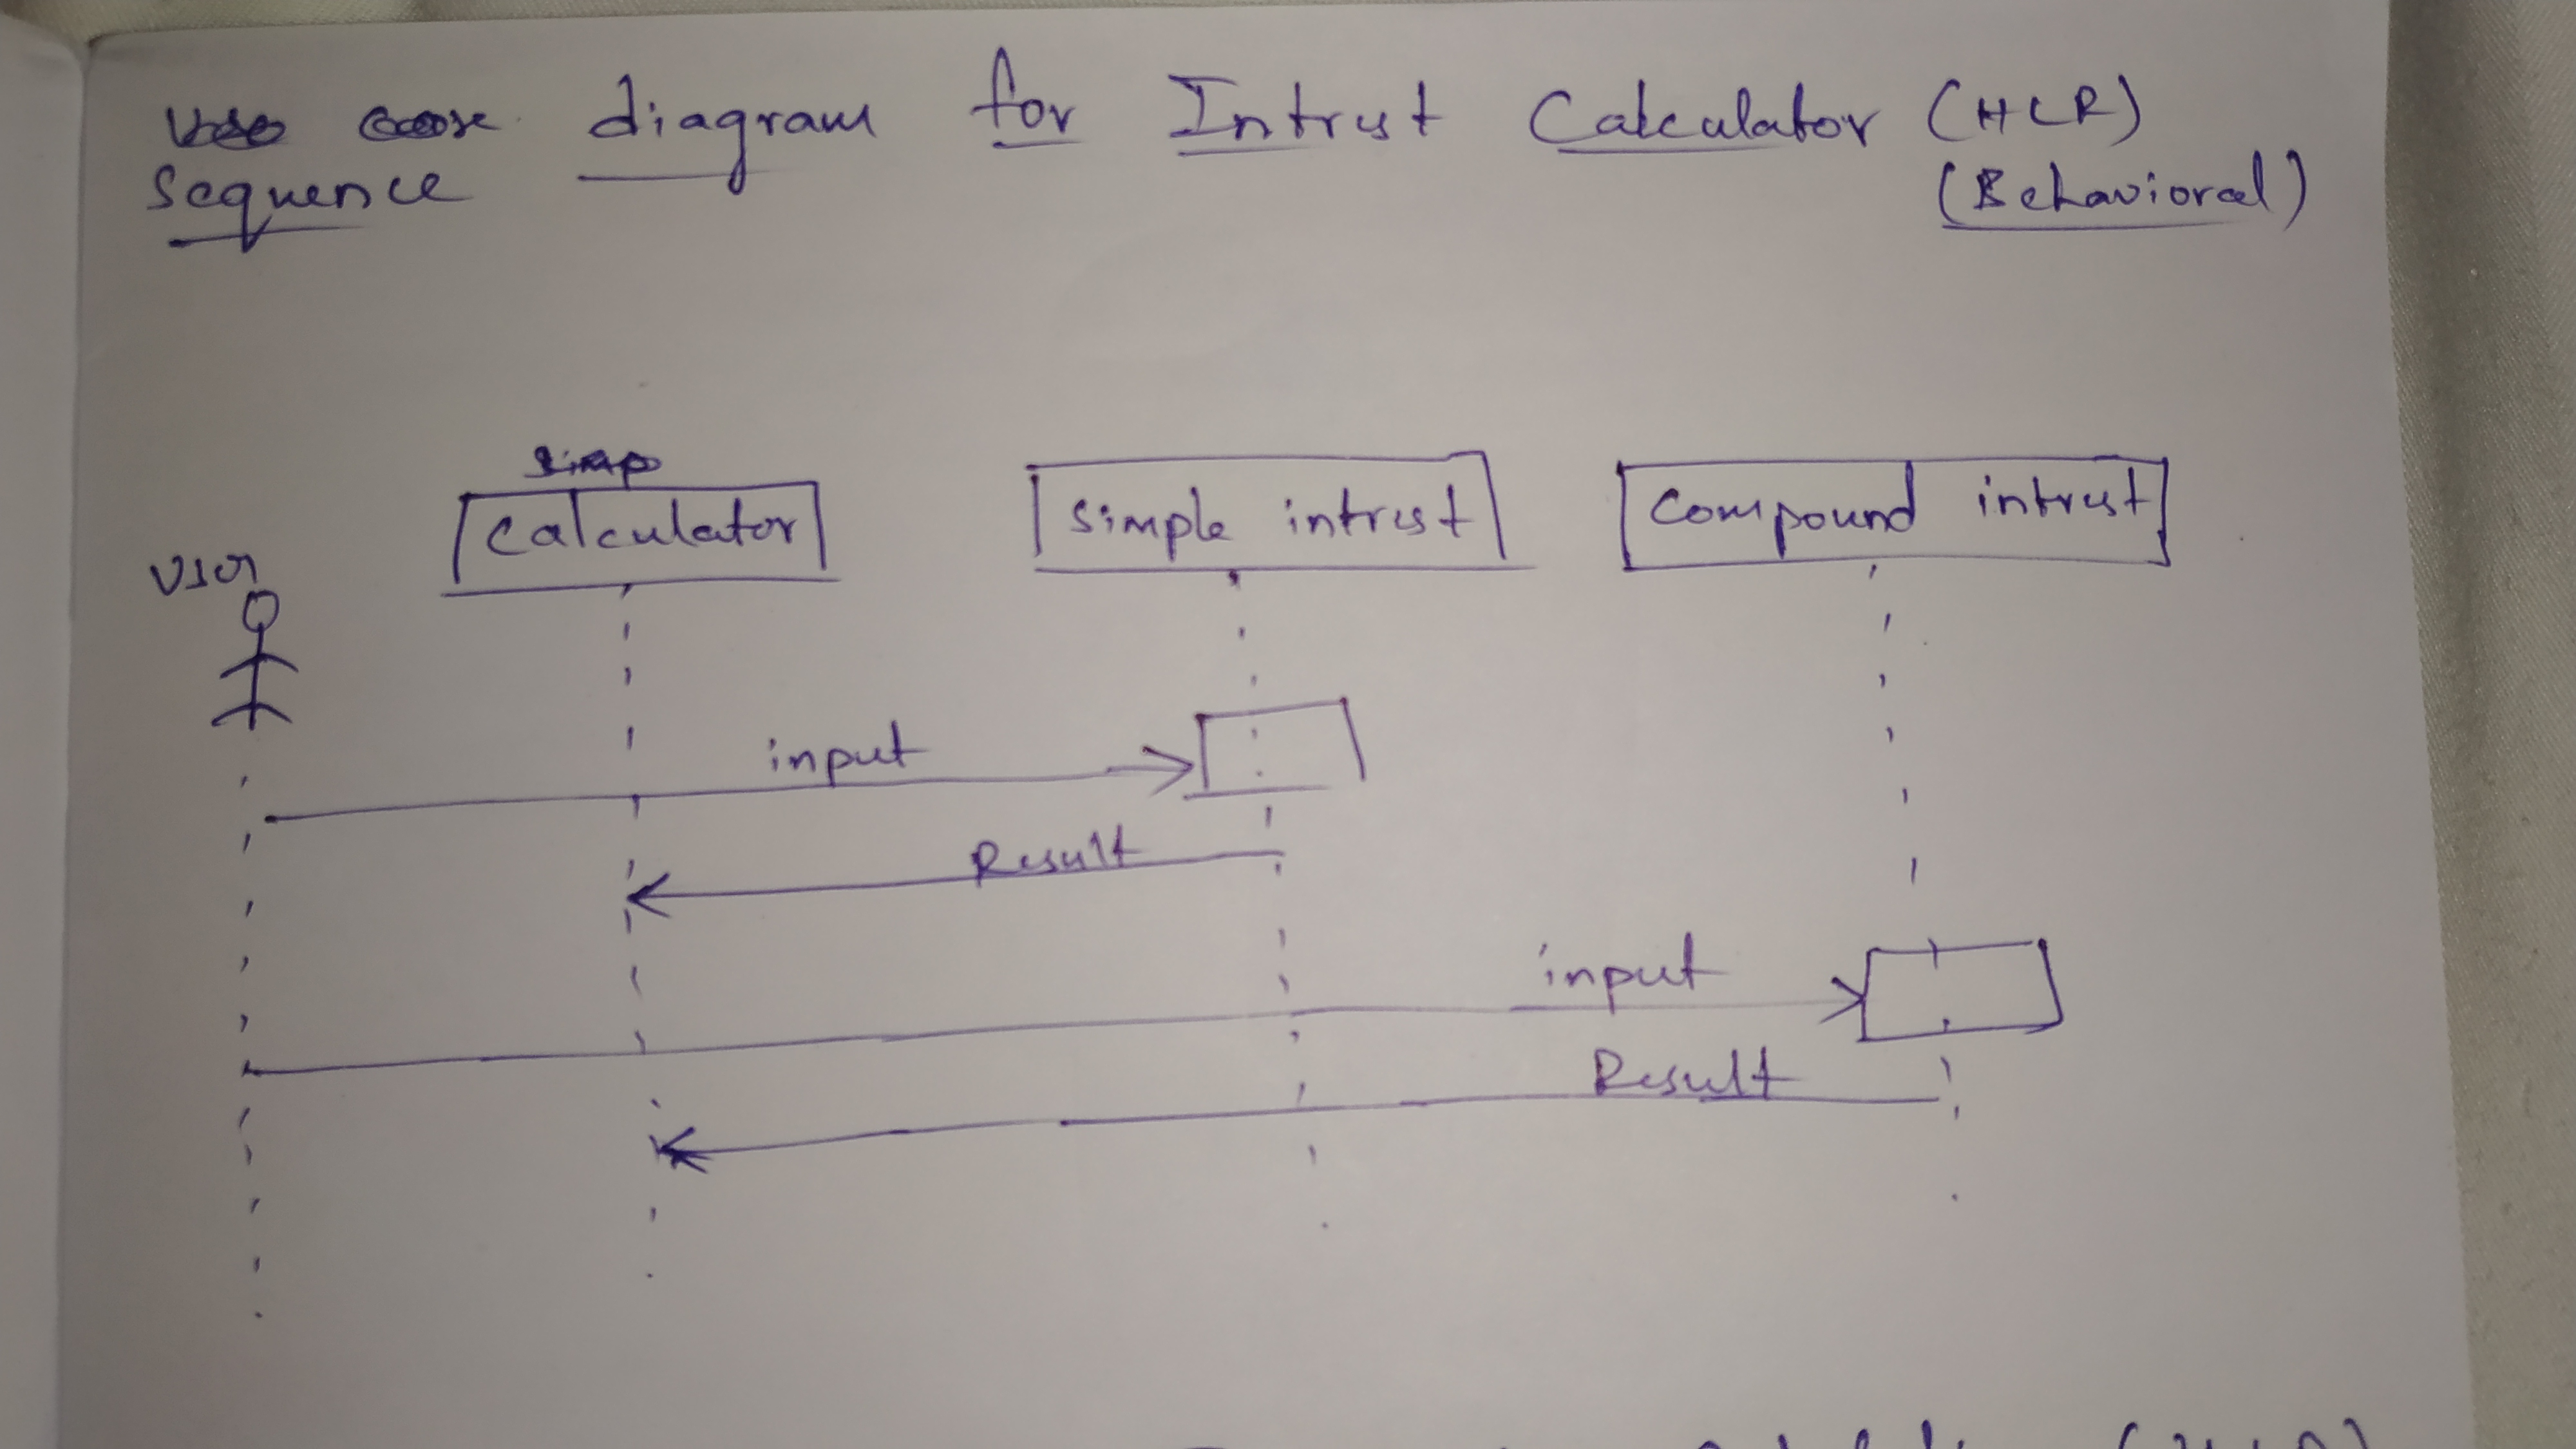 diagram for Intrust Calculator (HLR)
Sequence (Behavioral)
User
Calculator
Simple intrust
Compound intrust
input
Result
input
Result